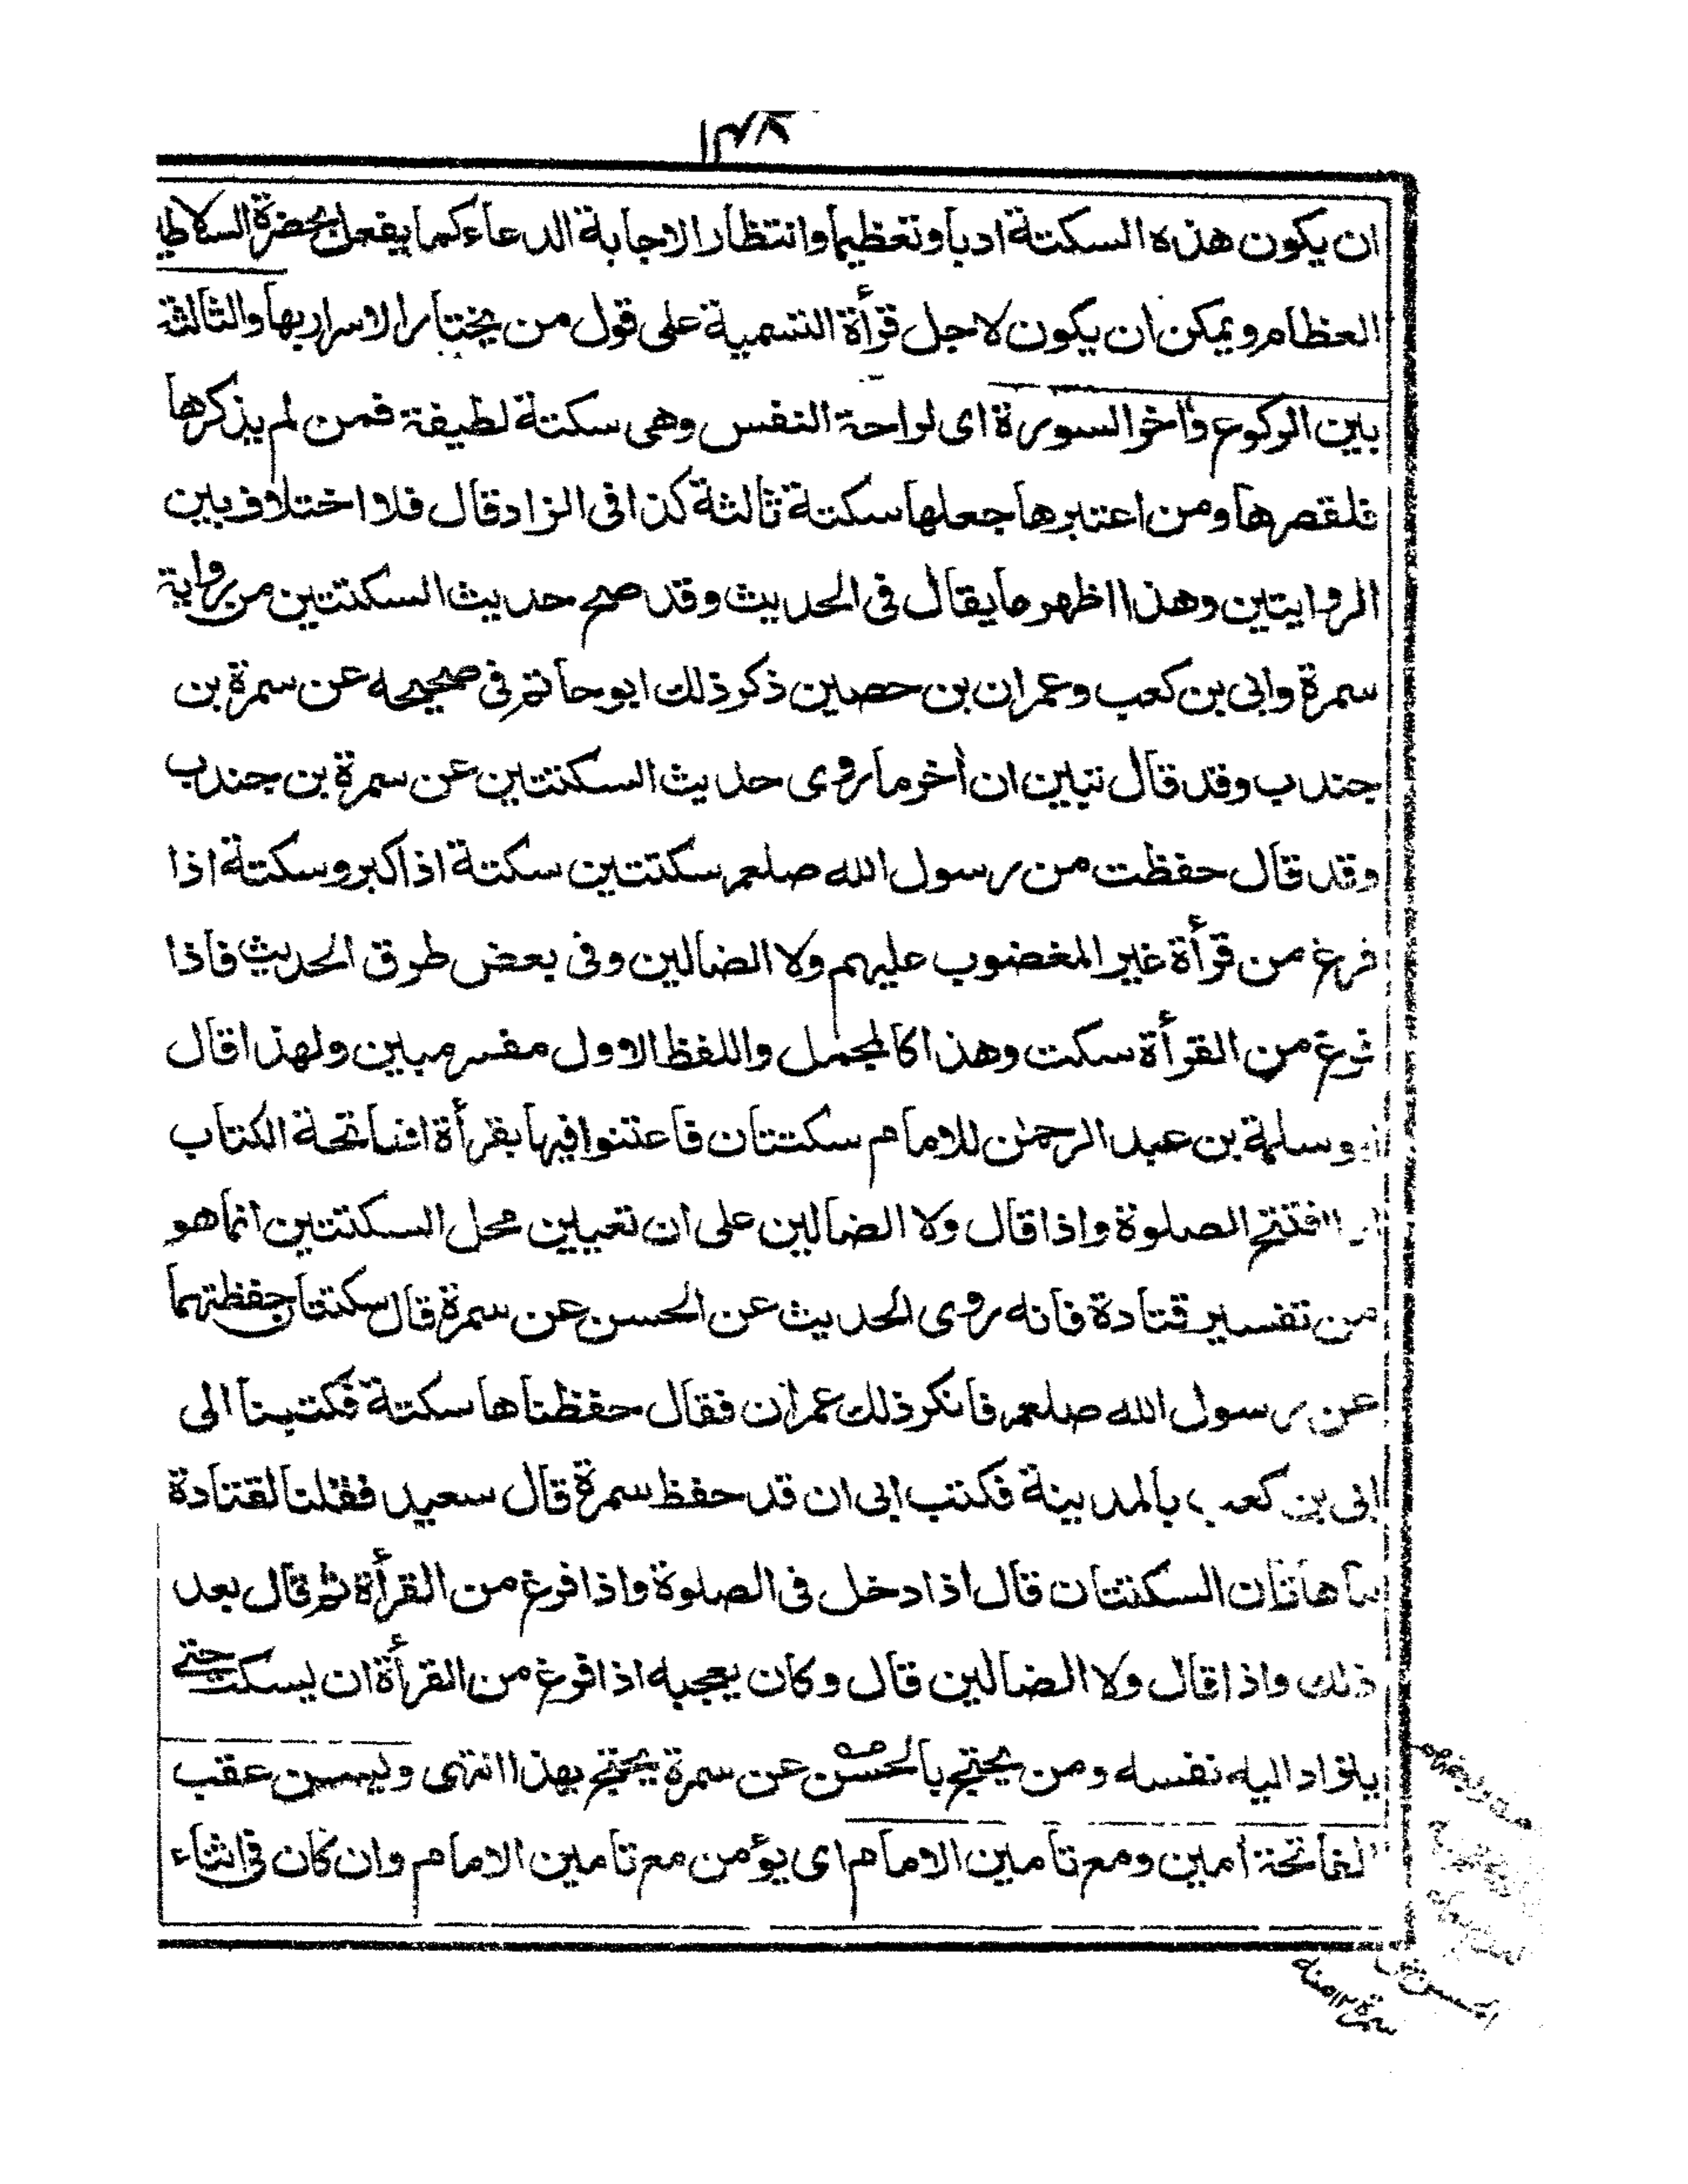 ١٣٨
ان يكون هذه السكتة ادبا وتعظيما وانتظار الاجابة الدعاء كما يفعل بحضرة السلاطين
العظام ويمكن ان يكون لاجل قرأة التسمية على قول من يختار الاسرار بها والثالثة
بين الركوع وأخر السورة اى لراحة النفس وهى سكتة لطيفة فمن لم يذكرها
فلقصرها ومن اعتبرها جعلها سكتة ثالثة كذا فى الزاد قال فلا اختلاف بين
الروايتين وهذا اظهر ما يقال فى الحديث وقد صح حديث السكتتين من رواية
سمرة وابى بن كعب وعمران بن حصين ذكر ذلك ابو حاتم فى صحيحه عن سمرة بن
جندب وقد قال تبين ان أخر ما روى حديث السكتتين عن سمرة بن جندب
وقد قال حفظت من رسول الله صلعم سكتتين سكتة اذا كبر وسكتة اذا
فرغ من قرأة غير المغضوب عليهم ولا الضالين وفى بعض طرق الحديث فاذا
فرغ من القرأة سكت وهذا كالمجمل واللفظ الاول مفسر مبين ولهذا قال
ابو سلمة بن عبد الرحمٰن للامام سكتتان فاعتنوا فيها بقرأة افاتحة الكتاب
اذا افتتح الصلوة واذا قال ولا الضالين على ان تعيين محل السكتتين انما هو
من تفسير قتادة فانه روى الحديث عن الحسن عن سمرة قال سكتتان حفظتهما
عن رسول الله صلعم فانكر ذلك عمران فقال حفظناها سكتة فكتبنا الى
ابى بن كعب بالمدينة فكتب ابى ان قد حفظ سمرة قال سعيد فقلنا لقتادة
ما هاتان السكتتان قال اذا دخل فى الصلوة واذا فرغ من القرأة ثم قال بعد
ذلك واذا قال ولا الضالين قال وكان يعجبه اذا فرغ من القرأة ان يسكت حتى
يتراد اليه نفسه ومن يحتج بالحسن عن سمرة يحتج بهذا انتهى ويسن عقب
الفاتحة أمين ومع تأمين الامام اى يؤمن مع تأمين الامام وان كان فى اثناء